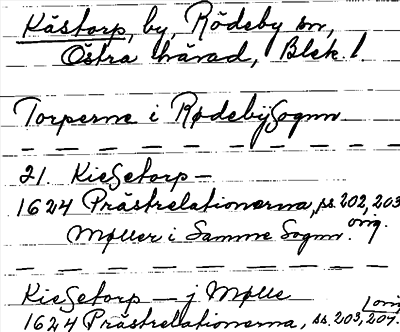 Kästorp, by, Rödeby sn,
Östra härad, Blek. l.
Torperne i RødebySognn
21. KieSetorp —
1624 Prästrelationerna, ss. 202, 203
orig.
Møller i Samme Sogn.
KieSetorp — j Mølle
1624 Prästrelationerna, ss. 203, 204.
orig